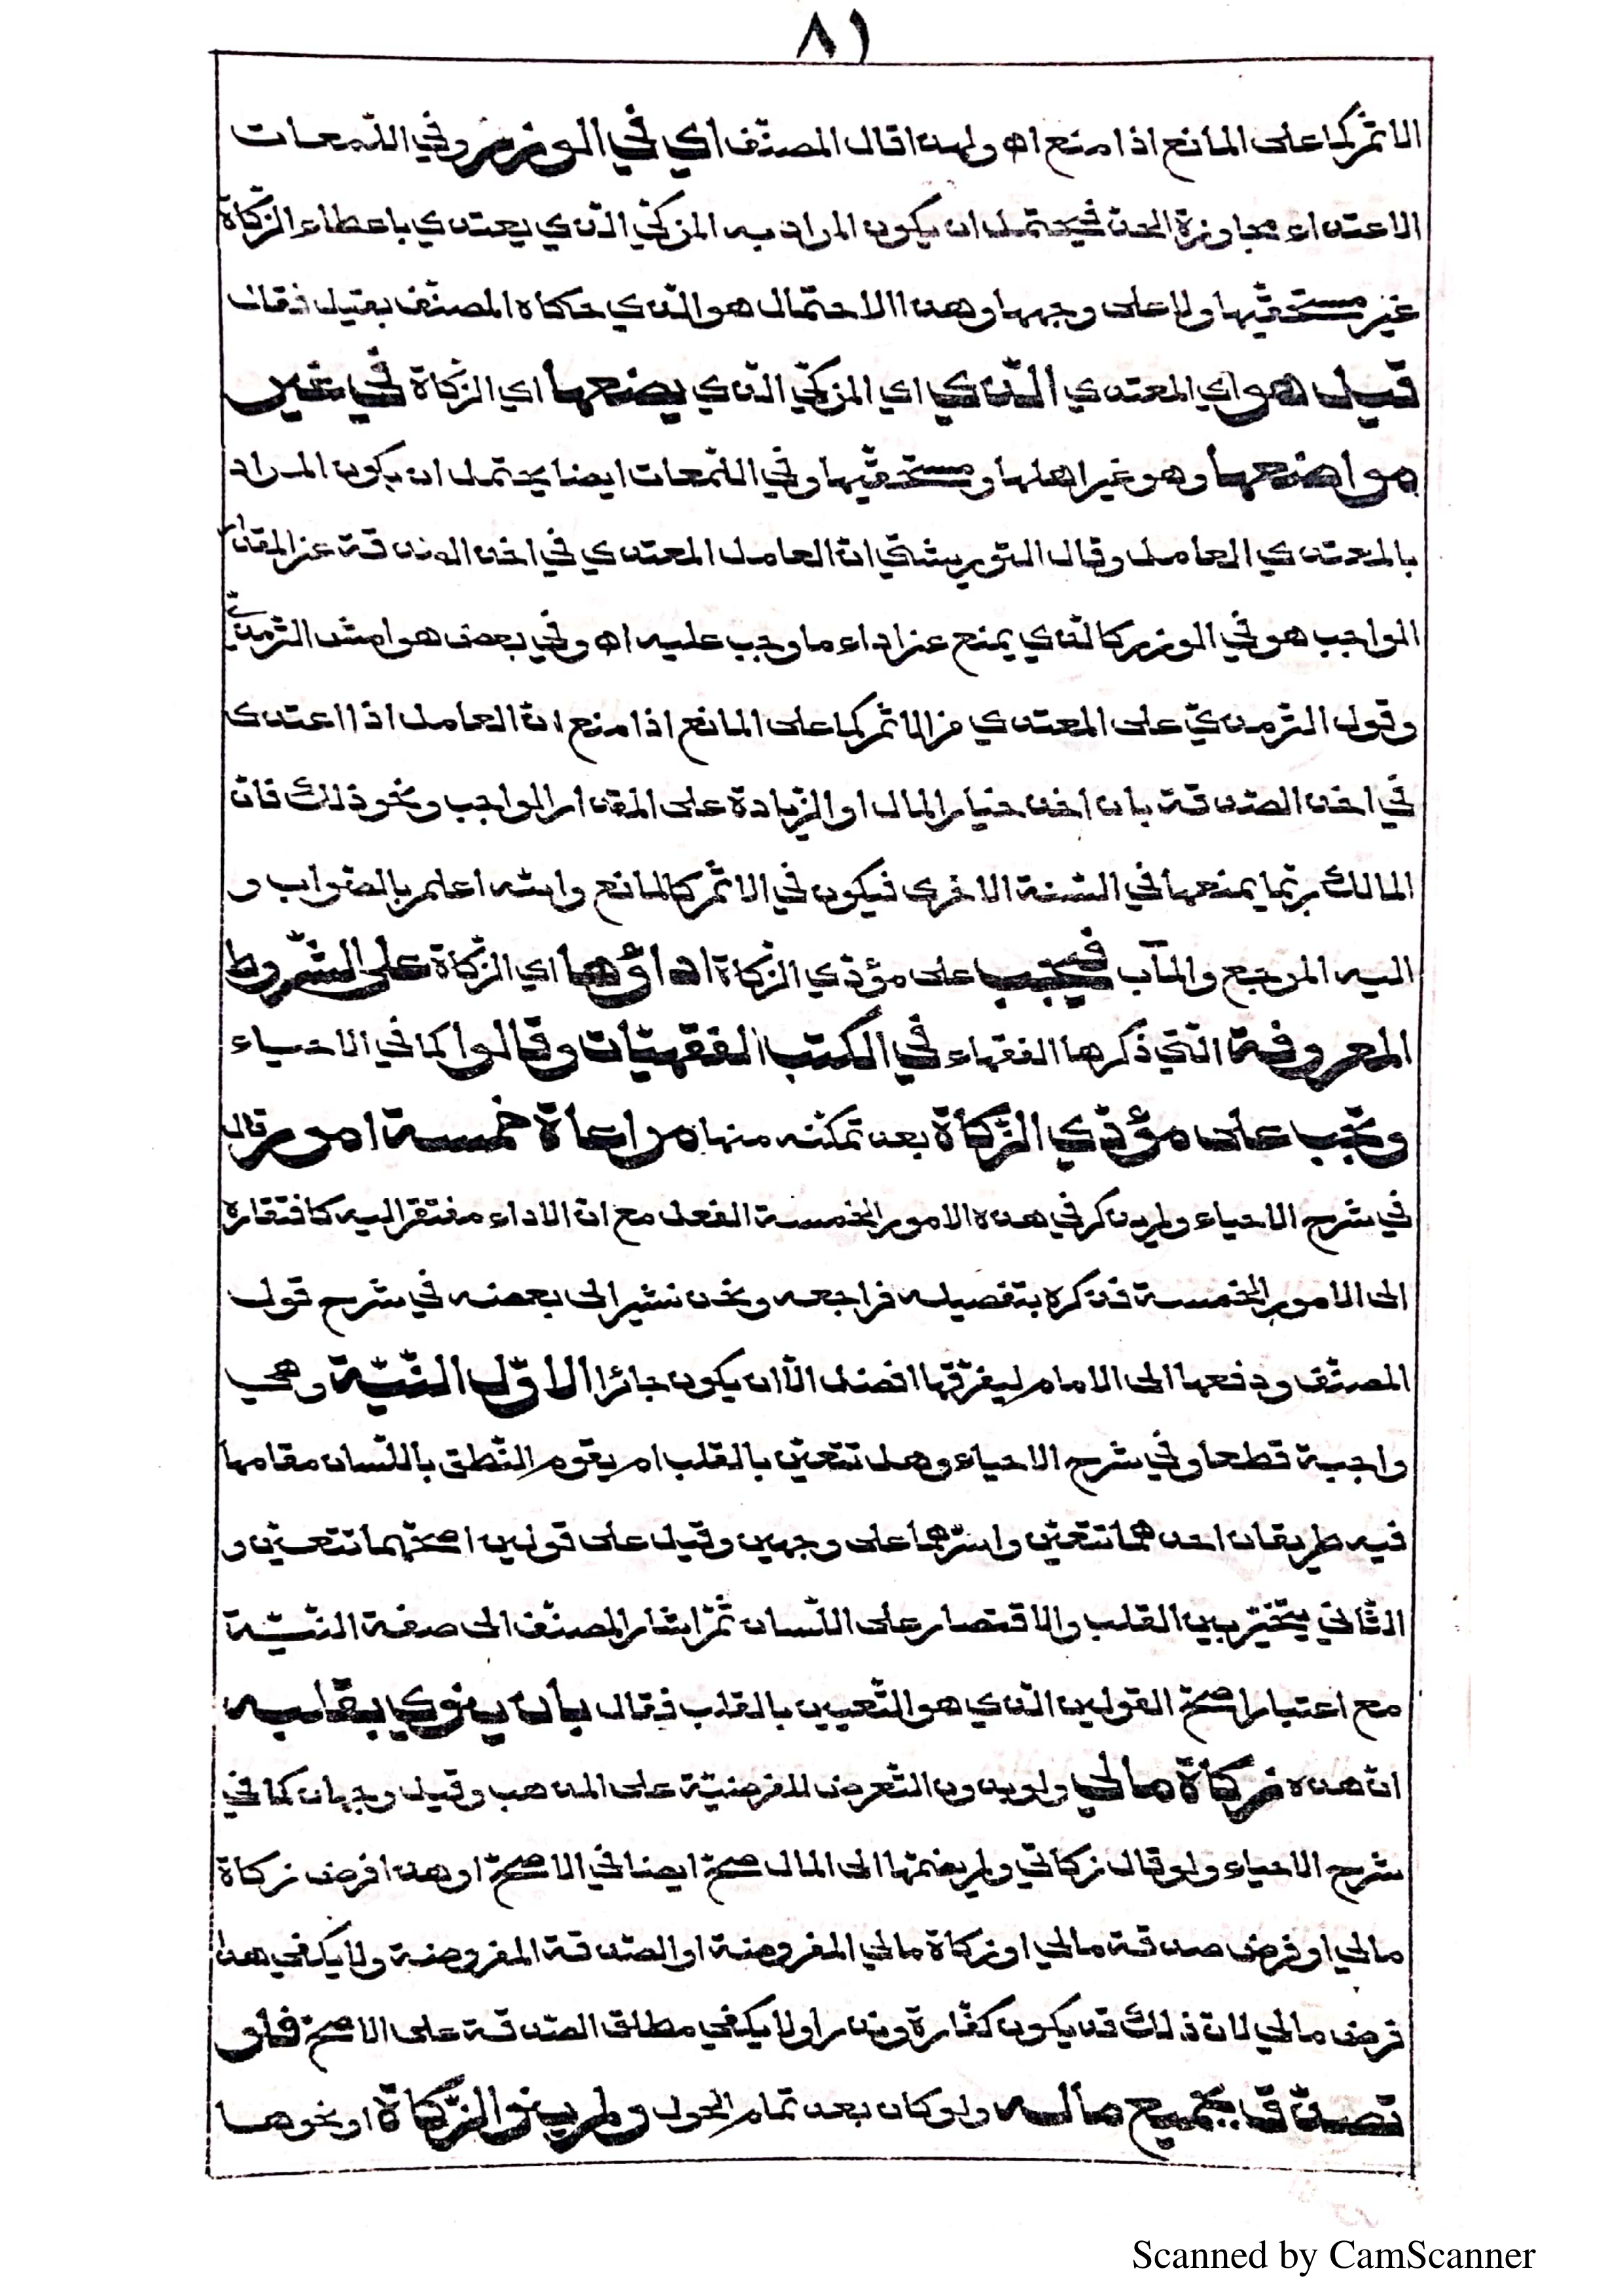 ٨١
الاثم كما على المانع اذا منع اه ولهذا قال المصنّف اي في الوزر وفي اللّمعات
الاعتداء مجاوزة الحدّ فيحتمل ان يكون المراد به المزكّي الّذي يعتدي باعطاء الزّكاة
غير مستحقّيها ولا على وجهها وهذا الاحتمال هو الّذي حكاه المصنّف بقيل فقال
قيل هو اي المعتدي الّذي اي المزكّي الّذي يضعها اي الزّكاة في غير
مواضعها وهو غير اهلها ومستحقّيها وفي اللّمعات ايضا يحتمل ان يكون المراد
بالمعتدي العامل وقال التّوربشتي انّ العامل المعتدي في اخذ الصّدقة عن المقدار
الواجب هو في الوزر كالّذي يمنع عن اداء ما وجب عليه اه وفي بعض هوامش التّرمذيّ
وقول التّرمذيّ على المعتدي من الاثم كما على المانع اذا منع انّ العامل اذا اعتدى
في اخذ الصّدقة بان اخذ خيار المال او الزّيادة على المقدار الواجب ونحو ذلك فانّ
المالك ربّما يمنعها في السّنة الاخرى فيكون في الاثم كالمانع والله اعلم بالصّواب و
اليه المرجع والمآب فيجب على مؤدّي الزّكاة اداؤها اي الزّكاة على الشّروط
المعروفة الّتي ذكرها الفقهاء في الكتب الفقهيّات وقالوا كما في الاحياء
ويجب على مؤدّي الزّكاة بعد تمكّنه منها مراعاة خمسة امور قال
في شرح الاحياء ولم يذكر في هذه الامور الخمسة الفعل مع انّ الاداء مفتقر اليه كافتقاره
الى الامور الخمسة فذكره بتفصيله فراجعه ونحن نشير الى بعضه في شرح قول
المصنّف ودفعها الى الامام ليفرّقها افضل الّا ان يكون جائرا الاوّل النّيّة وهي
واجبة قطعا وفي شرح الاحياء وهل تتعيّن بالقلب ام يقوم النّطق باللّسان مقامها
فيه طريقان احدهما تتعيّن واشهرهما على وجهين وقيل على قولين اصحّهما تتعيّن و
الثّاني يتخيّر بين القلب والاقتصار على اللّسان ثمّ اشار المصنّف الى صفة النّيّة
مع اعتبار اصحّ القولين الّذي هو التّعيين بالقلب فقال بان ينوي بقلبه
انّ هذه زكاة مالي ولو بدون التّعرض للفرضيّة على المذهب وقيل وجهان كما في
شرح الاحياء ولو قال زكاتي ولم يضمّها الى المال صحّ ايضا في الاصحّ او هذا فرض زكاة
مالي او فرض صدقة مالي او زكاة مالي المفروضة او الصّدقة المفروضة ولا يكفي هذا
فرض مالي لانّ ذلك قد يكون كفّارة ونذرا ولا يكفي مطلق الصّدقة على الاصحّ فلو
تصدّق بجميع ماله ولو كان بعد تمام الحول ولم ينو الزّكاة او نحوها
Scanned by CamScanner